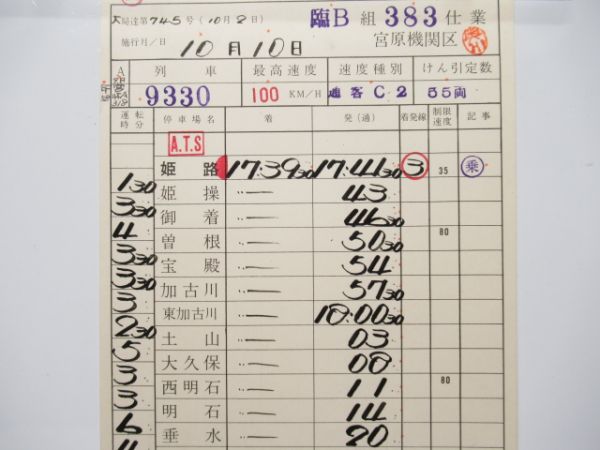 大局達第745号(10月8日) 臨B組383仕業
施行月/日 10月10日 宮原機関区
A 列車 最高速度 速度種別 けん引定数
9330 100 KM/H 通客C2 55両
運転時分 停車場名 着 発(通) 着発線 制限速度 記事
A.T.S
姫路 17:39 30 17:41 30 3 35 乗
1 30 姫操 〃 — 43
3 30 御着 〃 — 46 30
4 曽根 〃 — 50 30 80
3 30 宝殿 〃 — 54
3 30 加古川 〃 — 57 30
3 東加古川 〃 — 18:00 30
2 30 土山 〃 — 03
5 大久保 〃 — 08
3 西明石 〃 — 11 80
3 明石 〃 — 14
6 垂水 〃 — 20
4